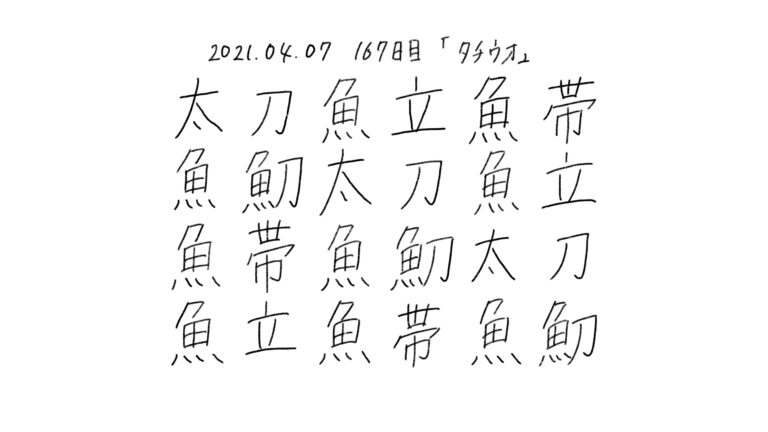 2021.04.07 167日目 「タチウオ」
太刀魚立魚帯
魚魛太刀魚立
魚帯魚魛太刀
魚立魚帯魚魛